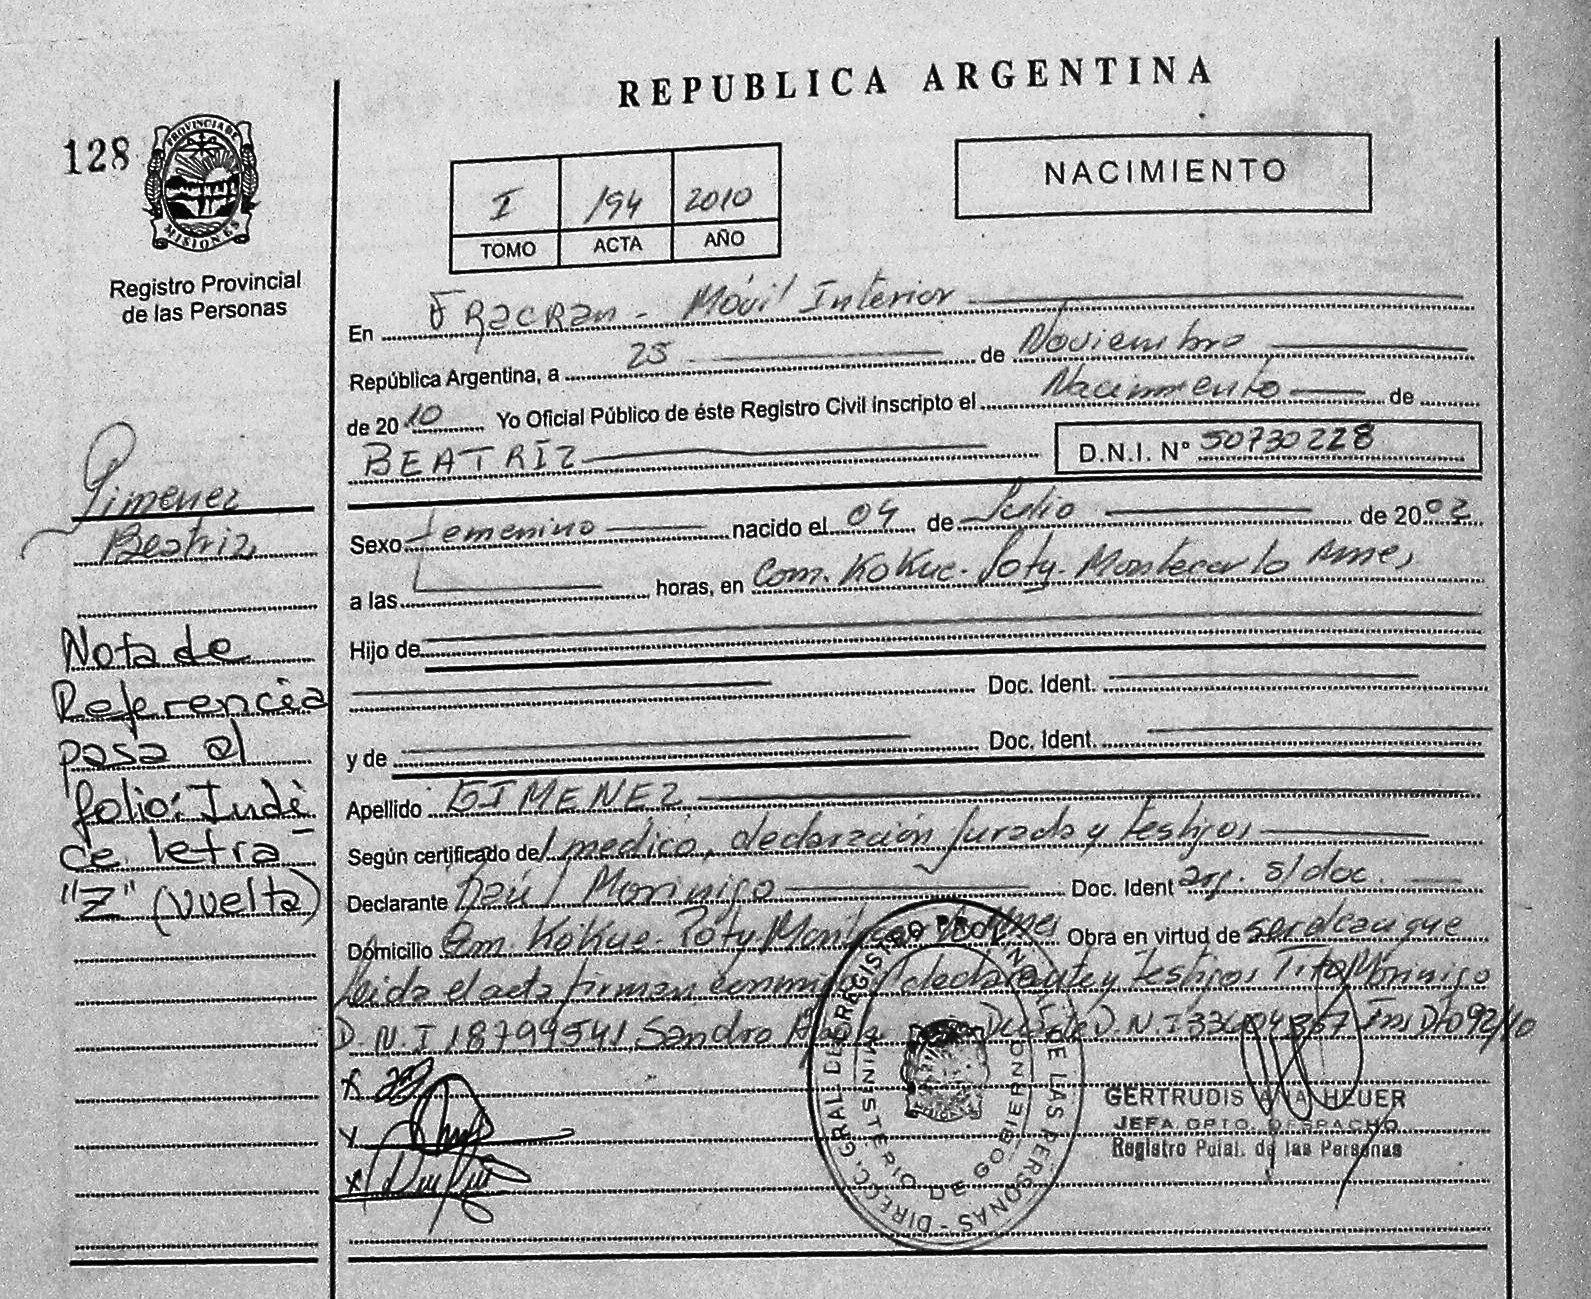 REPUBLICA ARGENTINA
128
PROVINCIA DE
MISIONES
Registro Provincial
de las Personas
NACIMIENTO
I 194 2010
TOMO ACTA AÑO
En Fracran - Móvil Interior
República Argentina, a 25 de Noviembre
de 2010 Yo Oficial Público de éste Registro Civil inscripto el Nacimiento de
BEATRIZ D.N.I. N° 50730228
Gimenez
Beatriz
Sexo femenino nacido el 04 de Julio de 2002
a las horas, en Com. Kokue. Poty. Montecarlo Mnes
Hijo de
Doc. Ident.
y de Doc. Ident.
Apellido GIMENEZ
Según certificado del medico, declaración jurada y testigos
Declarante Raúl Morinigo Doc. Ident arg. s/doc.
Domicilio Com. Kokue. Poty Obra en virtud de ser el cacique
leida el acta firman conmigo declarante y testigos Tito Morinigo
D.N.I 18799541 Sandro Duarte D.N.I Ins Dto 92/10
Nota de
Referencia
pasa al
folio: Indi
ce letra
"Z" (vuelta)
DIRECC. GRAL DE REGISTRO PROVINCIAL DE LAS PERSONAS
MINISTERIO DE GOBIERNO
GERTRUDIS ANA HEUER
JEFA DPTO. DESPACHO
Registro Pcial. de las Personas